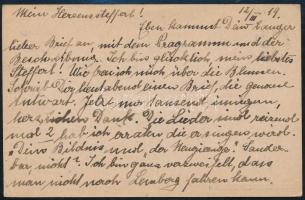 Mein Herzenssteffort! 12/III 19.
Eben kommt Dein langer
lieber Brief an, mit dem Programm und der
Beschreibung. Ich bin glücklich, mein liebstes
Steffort! Wie freu ich mich über die Blumen.
Sofort Dir heut abend einen Brief, die genaue
Antwort. Jetzt nur tausend innigen,
herzlichen Dank. Die Lieder sind reizend
und 2 hab ich erraten die er singen wird.
"Dein Bildnis und der Neugierige". Sonder-
bar, nicht? Ich bin ganz verzweifelt, dass
man nicht nach Lemberg fahren kann.